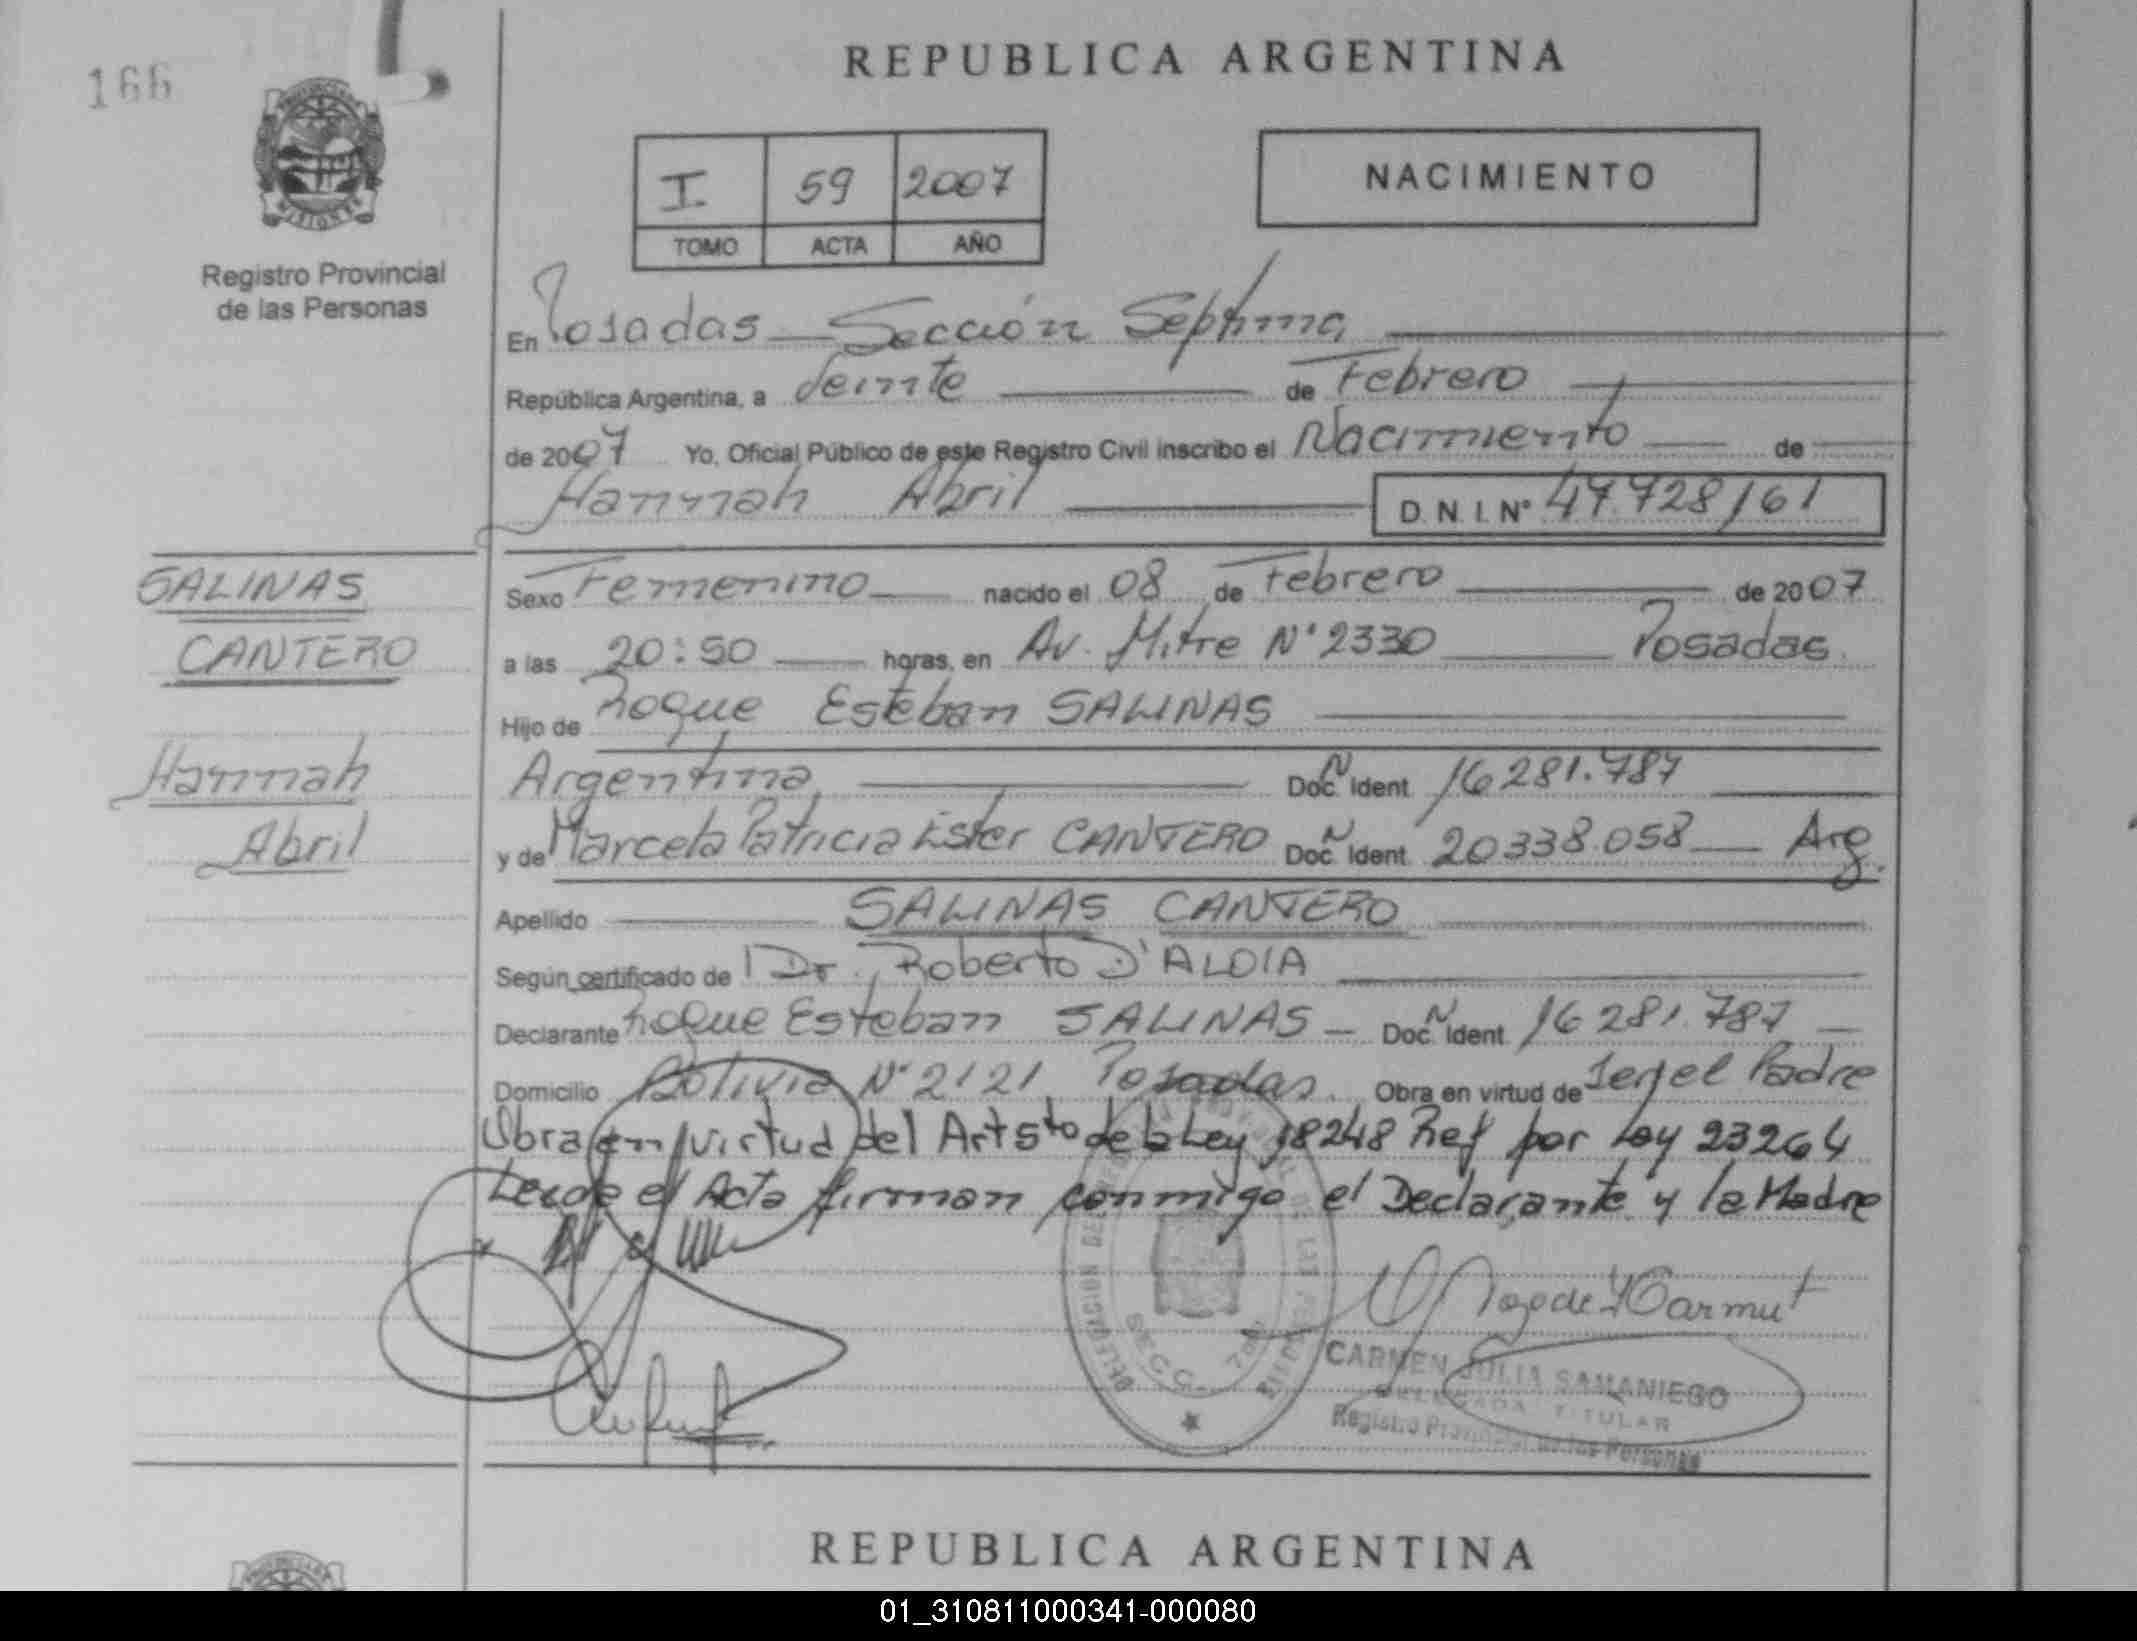 REPUBLICA ARGENTINA
166
I 59 2007
TOMO ACTA AÑO
NACIMIENTO
Registro Provincial
de las Personas
En Posadas Sección Séptima
República Argentina, a Veinte de Febrero
de 2007 Yo, Oficial Público de este Registro Civil inscribo el Nacimiento de
Hannah Abril D.N.I. Nº 47.728161
SALINAS
CANTERO
Hannah
Abril
Sexo Femenino nacido el 08 de Febrero de 2007
a las 20:50 horas, en Av. Mitre Nº 2330 Posadas.
Hijo de Roque Esteban SALINAS
Argentina Doc. Ident 16281.787
y de Marcela Patricia Ester CANTERO Doc. Ident 20338.058 Arg.
Apellido SALINAS CANTERO
Según certificado de Dr. Roberto D'ALOIA
Declarante Roque Esteban SALINAS Doc. Ident. 16281.787
Domicilio Bolivia Nº 2121 Posadas. Obra en virtud de Ser el Padre
Obra en virtud del Art 5to de la Ley 18248 Ref por Ley 23264
Leida el Acta firman conmigo el Declarante y la Madre
SECC. 7
CARMEN JULIA SAMANIEGO
DELEGADA TITULAR
Registro Provincial de las Personas
REPUBLICA ARGENTINA
01_310811000341-000080